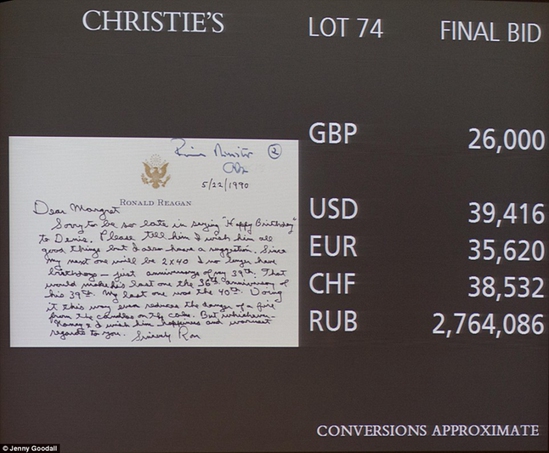 CHRISTIE'S
LOT 74
FINAL BID
Prime Minister 2
5/22/1990
RONALD REAGAN
Dear Margret
Sorry to be so late in saying "Happy Birthday"
to Denis. Please tell him I wish him all
good things but I also have a suggestion. Since
my next one will be 2x40 I no longer have
birthdays – just anniversarys of my 39th. That
would make his last one the 36th anniversary of
his 39th. My last one was the 40th. Doing
it this way even reduces the danger of a fire
from the candles on the cake. But whichever –
Nancy & I wish him happiness and warmest
regards to you. Sincerely Ron
GBP 26,000
USD 39,416
EUR 35,620
CHF 38,532
RUB 2,764,086
CONVERSIONS APPROXIMATE
© Jenny Goodall